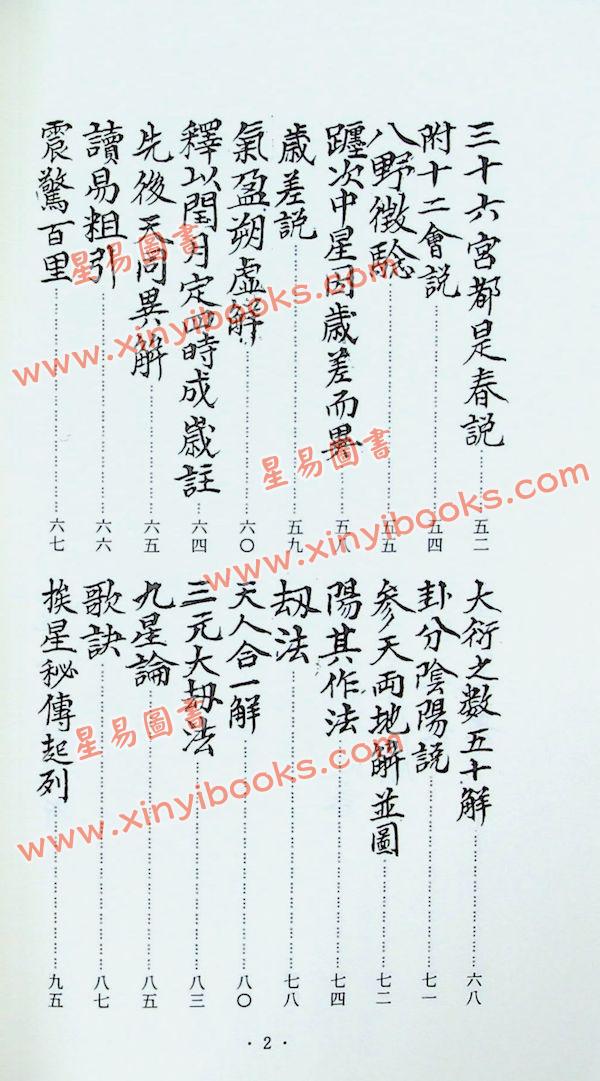 三十六宮都是春說 五二
附十二會說 五四
八野徵驗 五五
躔次中星因歲差而異 五八
歲差說 五九
氣盈朔虛解 六〇
釋以閏月定四時成歲註 六四
先後天同異解 六五
讀易粗引 六六
震驚百里 六七
大衍之數五十解 六八
卦分陰陽說 七一
參天両地解並圖 七二
陽其作法 七四
刼法 七八
天人合一解 八〇
三元大刼法 八三
九星論 八五
歌訣 八七
挨星秘傳起列 九五
·2·
星易圖書
www.xinyibooks.com
星易圖書
www.xinyibooks.com
星易圖書
www.xinyibooks.com